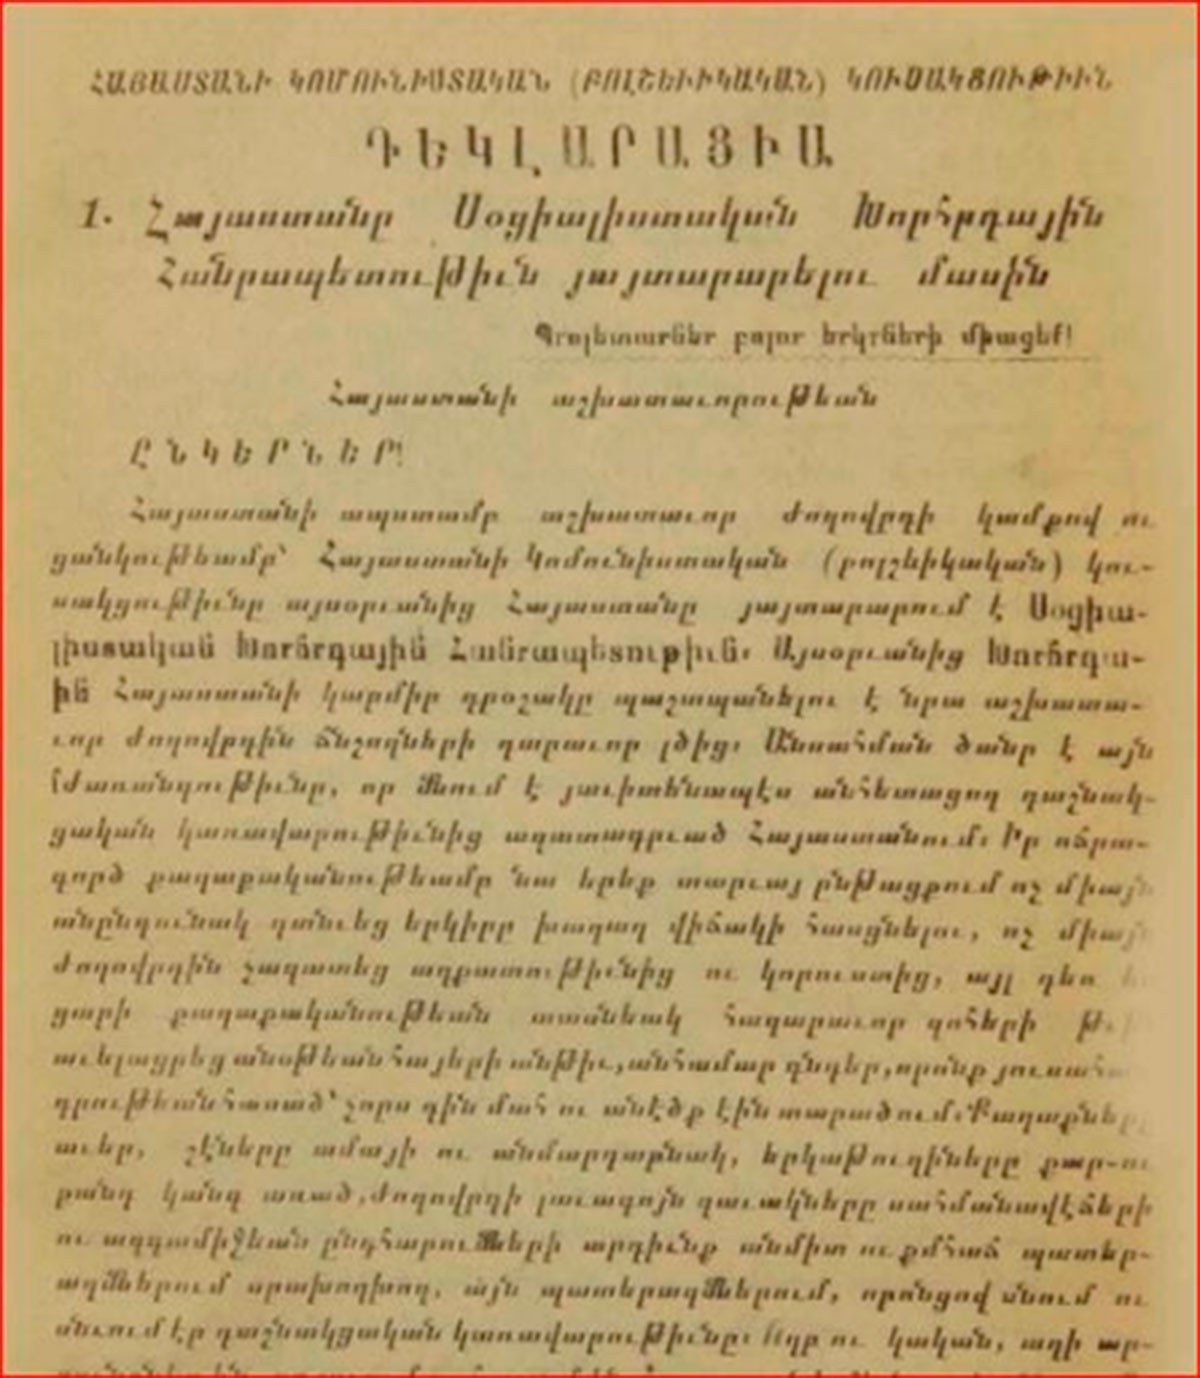 ՀԱՅԱՍՏԱՆԻ ԿՈՄՈՒՆԻՍՏԱԿԱՆ (ԲՈԼՇԵՒԻԿԱԿԱՆ) ԿՈՒՍԱԿՑՈՒԹԻՒՆ
ԴԵԿԼԱՐԱՑԻԱ
1. Հայաստանը Սօցիալիստական Խորհրդային
Հանրապետութիւն յայտարարելու մասին
Պրոլետարներ բոլոր երկրների միացեք!
Հայաստանի աշխատաւորութեան
ԸՆԿԵՐՆԵՐ!
Հայաստանի ապստամբ աշխատաւոր ժողովրդի կամքով ու
ցանկութեամբ՝ Հայաստանի Կոմունիստական (բոլշեիկական) կու-
սակցութիւնը այսօրւանից Հայաստանը յայտարարում է Սօցիա-
լիստական Խորհրդային Հանրապետութիւն։ Այսօրւանից Խորհրդա-
ին Հայաստանի կարմիր դրօշակը պաշտպանելու է նրա աշխատա-
ւոր ժողովրդին ճնշողների դարաւոր լծից։ Անսահման ծանր է այն
ժառանգութիւնը, որ մնում է յաւիտենապէս անհետացող դաշնակ-
ցական կառավարութիւնից ազատագրւած Հայաստանում։ Իր ոճրա-
գործ քաղաքականութեամբ նա երեք տարւայ ընթացքում ոչ միայն
անընդունակ գտնւեց երկիրը խաղաղ վիճակի հասցնելու, ոչ միայն
ժողովրդին չազատեց աղքատութիւնից ու կորուստից, այլ դեռ
ցարի քաղաքականութեան տասնեակ հազարաւոր զոհերի
աւելացրեց անօթեան հայերի անթիւ, անհամար դնդեր, որոնք
դրութեան հասած՝ չորս դին մահ ու անէծք էին տարածում։ Քաղաքները
աւեր, շէները ամայի ու անմարդաբնակ, երկաթուղիները քար-ու
քանդ կանգ առած, ժողովրդի լաւագոյն զաւակները սահմանավէճերի
ու ազգամիջեան ընդհարումների արդիւնք անմիտ ու քմհաճ պատեր-
ազմներում սրախողխող, այն պատերազմներում, որոնցով մնում ու
սնւում էր դաշնակցական կառավարութիւնը։ Աղը ու կական, աղի ար-